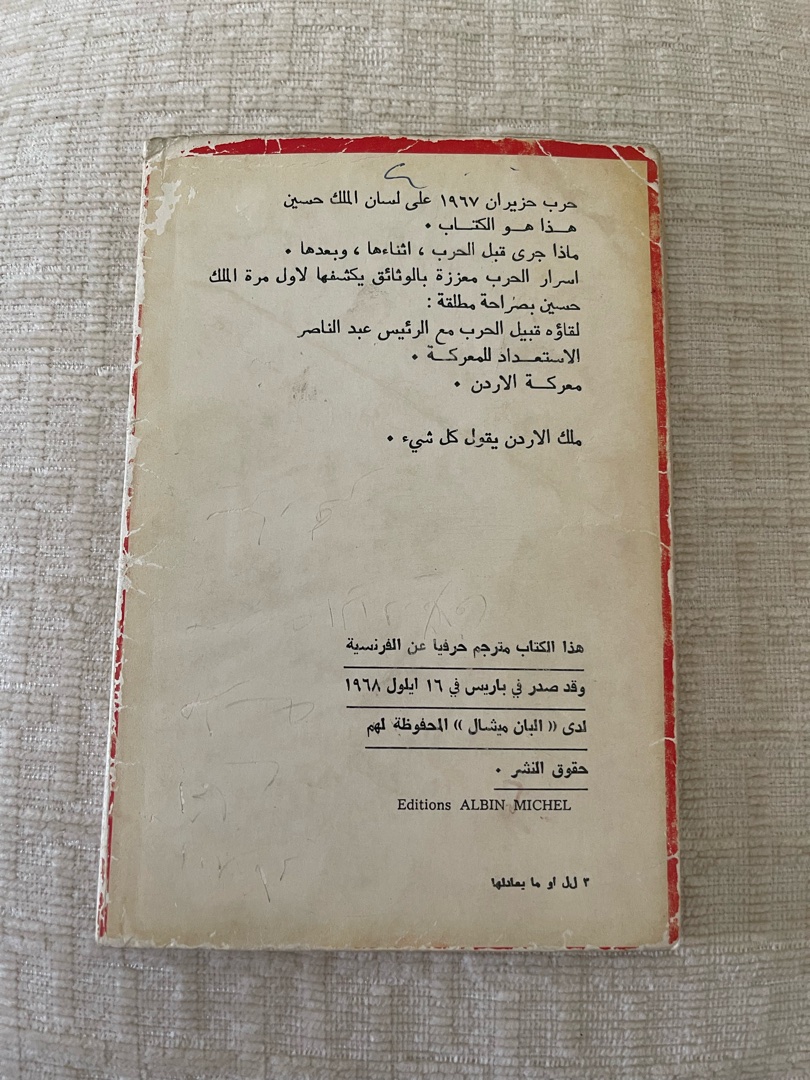 حرب حزيران ١٩٦٧ على لسان الملك حسين
هـذا هـو الكتـاب .
ماذا جرى قبل الحرب ، اثناءها ، وبعدها .
اسرار الحرب معززة بالوثائق يكشفها لاول مرة الملك
حسين بصراحة مطلقة :
لقاؤه قبيل الحرب مع الرئيس عبد الناصر
الاستعـداد للمعركـة .
معركـة الاردن .
ملك الاردن يقول كل شيء .
هذا الكتاب مترجم حرفيا عن الفرنسية
وقد صدر في باريس في ١٦ ايلول ١٩٦٨
لدى (( البان ميشال )) المحفوظة لهم
حقوق النشر .
Editions ALBIN MICHEL
٣ ل.ل او ما يعادلها